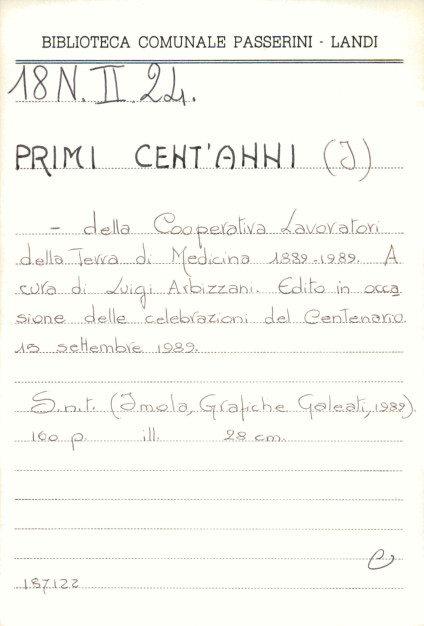 BIBLIOTECA COMUNALE PASSERINI - LANDI
18 N. II 24.
PRIMI CENT'ANNI (I)
- della Cooperativa Lavoratori
della Terra di Medicina 1889-1989. A
cura di Luigi Arbizzani. Edito in occa
sione delle celebrazioni del Centenario.
15 settembre 1989.
S.n.t. (Imola, Grafiche Galeati, 1989).
160 p. ill. 28 cm.
e
187122